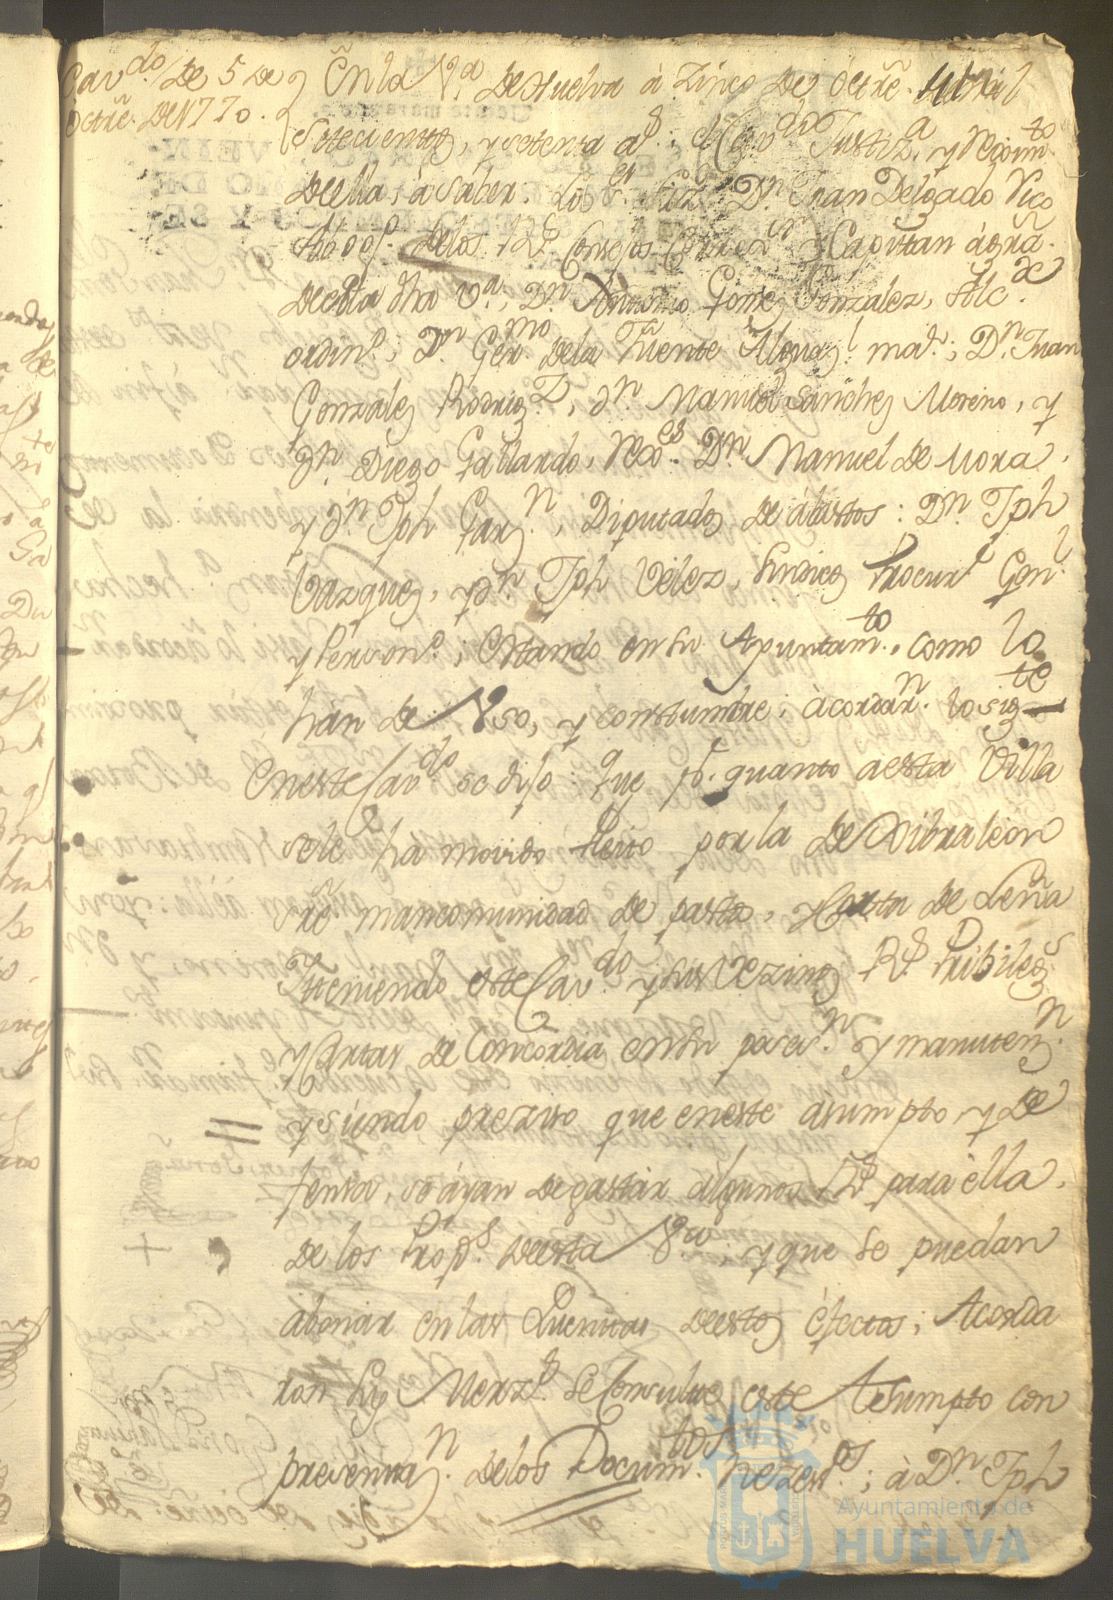 Cavdo. de 5 de
Octre. de 1770.
En la Va. de Huelva à zinco de Octre. de mil
Setecientos, y setenta as.; el Cavdo. Justiza. y Reximto.
de ella, à saber. Los Sres. Lizdo. Dn. Juan Delgado Vico
Abogdo. de los Rs. Consejos Correxor. y Capitan à gra.
de esta dha Va., Dn. Antonio Gomez Gonzalez, Alce.
ordino.; Dn. Germo. de la Fuente Alguazl. mar.; Dn. Juan
Gonzalez Rodrigz., Dn. Manuel Sanchez Moreno, y
Dn. Diego Gallardo, Rexres. Dn. Manuel de Mora,
y Dn. Jph Garzn., Diputados de àbastos: Dn. Jph
Vazquez, y Dn. Jph Velez, Sindicos Procurr. Genl.
y Persono.; Estando en su Ayuntamto., como lo
han de Uso, y constumbre; àcordarn. lo sigte
En este Cavdo. se dijo: Que pr. quanto a esta Villa
se le ha movido Pleito por la de Xibraleon
sre. mancomunidad de pasto, y Corta de Leña
Y teniendo este Cavdo. y sus Vezinos Rs. Pribilegs.
y Cartas de Concordia en su posen. y manutenzn.
y siendo preziso que en este asumpto, y de
fensa, se àyan de gastar àlgunos Rs. para èlla,
de los Props. de esta Va., y que se puedan
abonar en las Quentas de estos èfectos; Acorda
ron sus Merzs. se Consulte este Asumpto con
presenzian. de los Documtos. nezesos.; à Dn. Jph
Ayuntamiento de
HUELVA